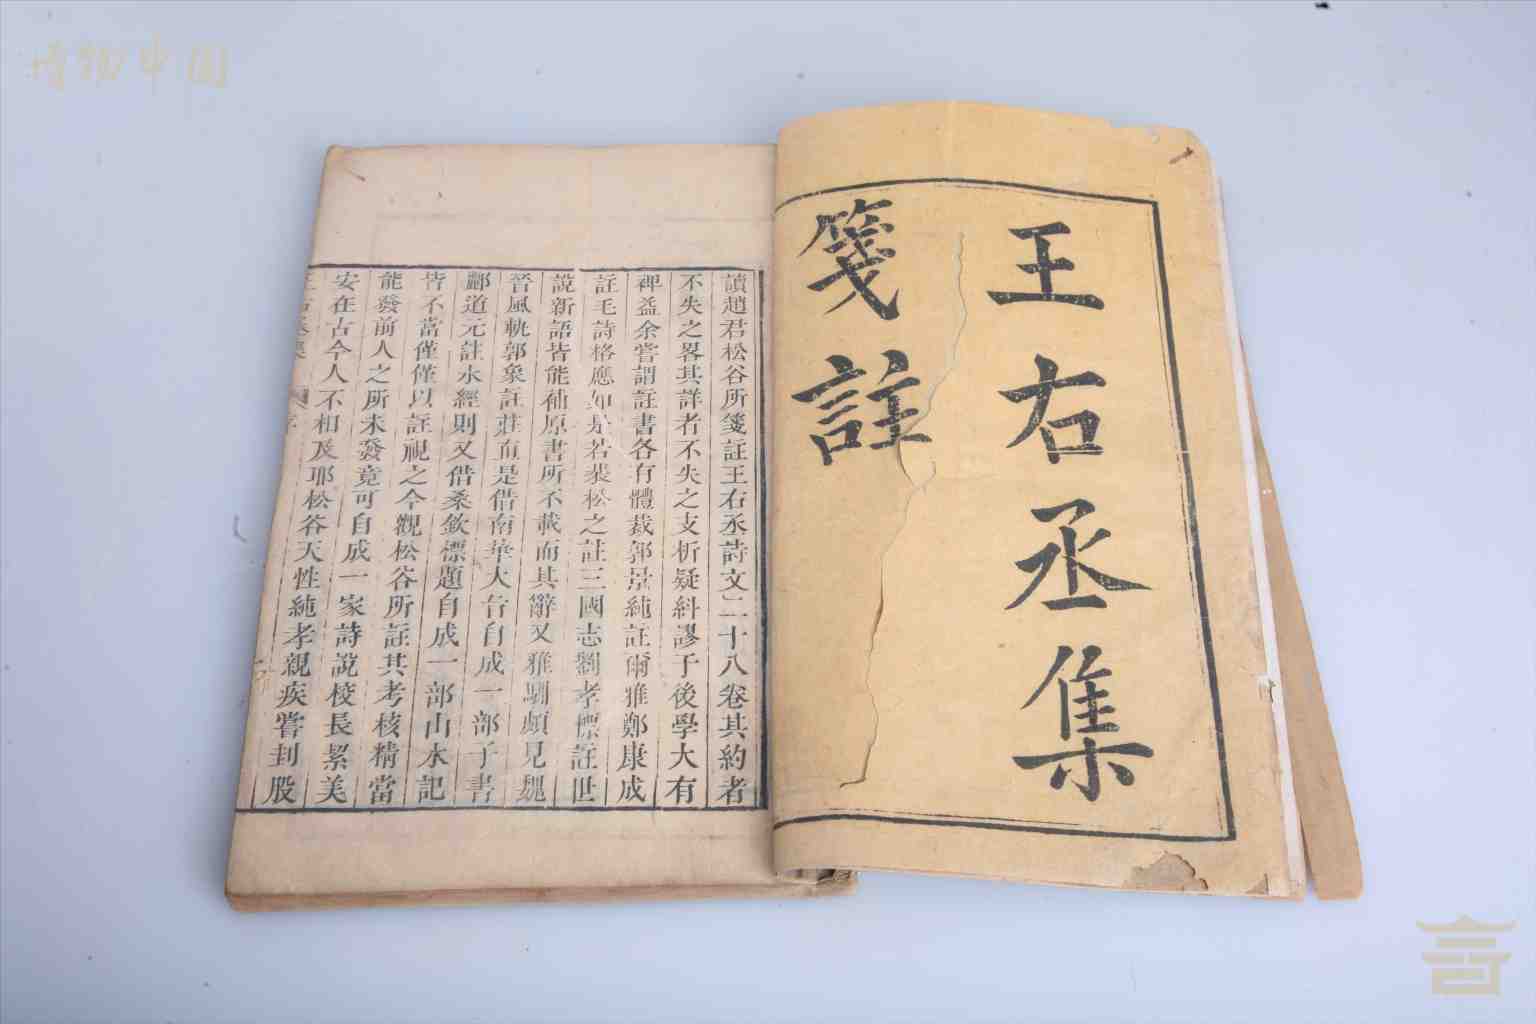 博物中国
王右丞集
箋註
讀趙君松谷所箋註王右丞詩文二十八卷其約者
不失之畧其詳者不失之支析疑糾謬于後學大有
裨益余嘗謂註書各有體裁郭景純註爾雅鄭康成
註毛詩格應如是若裴松之註三國志劉孝標註世
說新語皆能補原書所不載而其辭又雅馴頗見魏
晉風軌郭象註莊直是借南華大旨自成一部子書
酈道元註水經則又借桑欽標題自成一部山水記
皆不當僅僅以註視之今觀松谷所註其考核精當
能發前人之所未發竟可自成一家詩說校長絜美
安在古今人不相及耶松谷天性純孝親疾嘗刲股